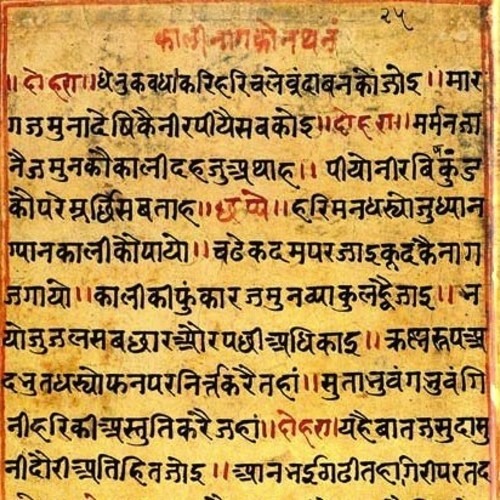 २५
कालीनागकोनथनं
॥दोहरा॥धेनुकवधोकरिहरिचलेबृंदाबनकोंजोइ॥मार
गजमुनादेषिकैनीरपीयैसबकोइ॥दोहरा॥मर्मनजा
नैजमुनकौकालीदहजुअथाह॥पीयोनीरबिकुंड
कौपरेमूर्छिसबताह॥छप्पे॥हरिमनधस्योजुध्यान
ग्पानकालीकौपायो॥बढेकदमपरजाइकूदकैनाग
जगायो॥कालीकीफुंकारजमुनव्याकुलह्वैजाइ॥भ
योजुजलसबछारऔरपछीअधिकाइ॥कृष्नरूपअ
दभुतधस्योफनपरनिर्त्तकरैतहां॥सुतानुबंगनुबंगि
नीहरिकीअस्तुतिकरैजहां॥दोहरा॥यहैबातजसुदासु
नीदौरीअतिहितजोइ॥आनभईगढीतहांगिरीपरतद